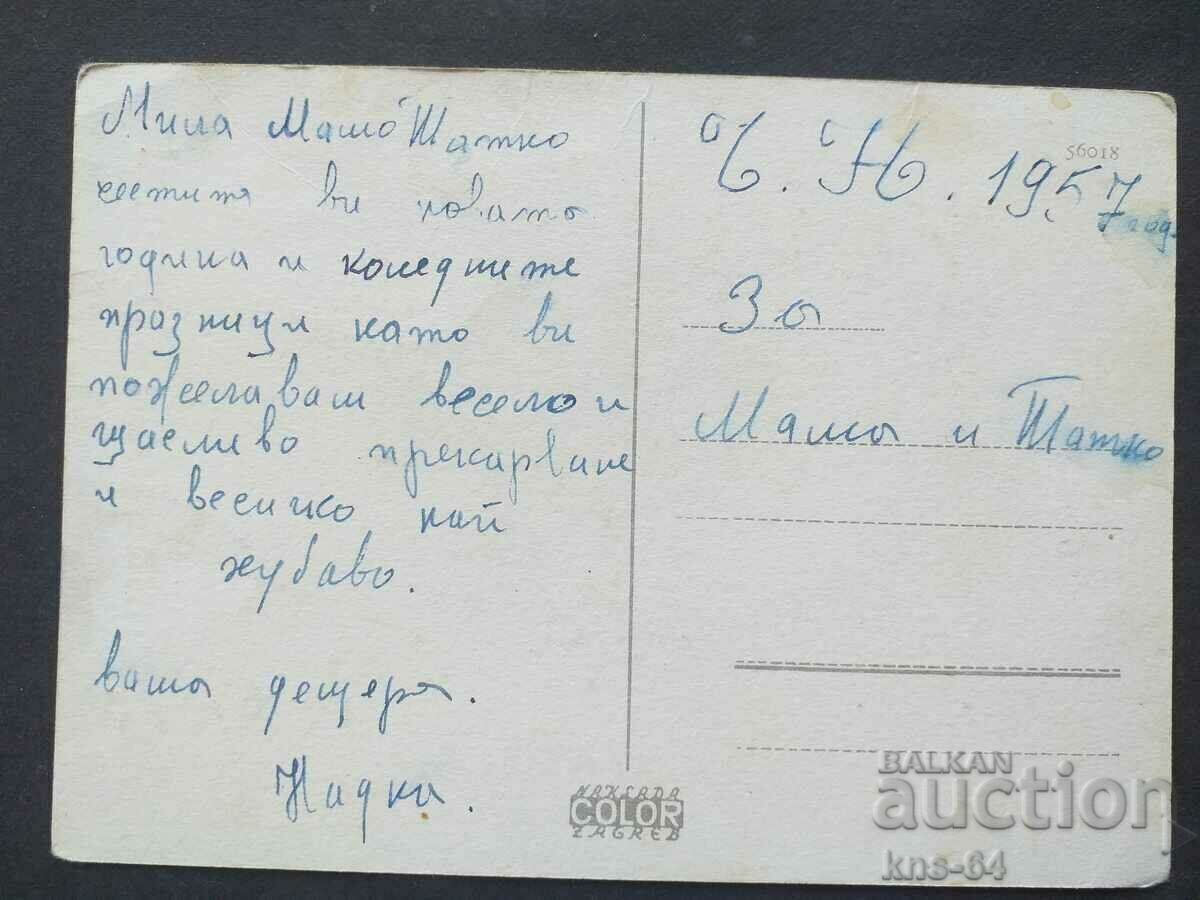 Мила Мамо Татко
честитя ви новата
година и коледните
празници като ви
пожелавам весело и
щасливо прекарване
и весичко най
хубаво.
ваша дещеря.
Надка.
Ч. Н. 1957 год.
56018
За
Мама и Татко
NAKLADA
COLOR
ZAGREB
BALKAN
auction
kns-64